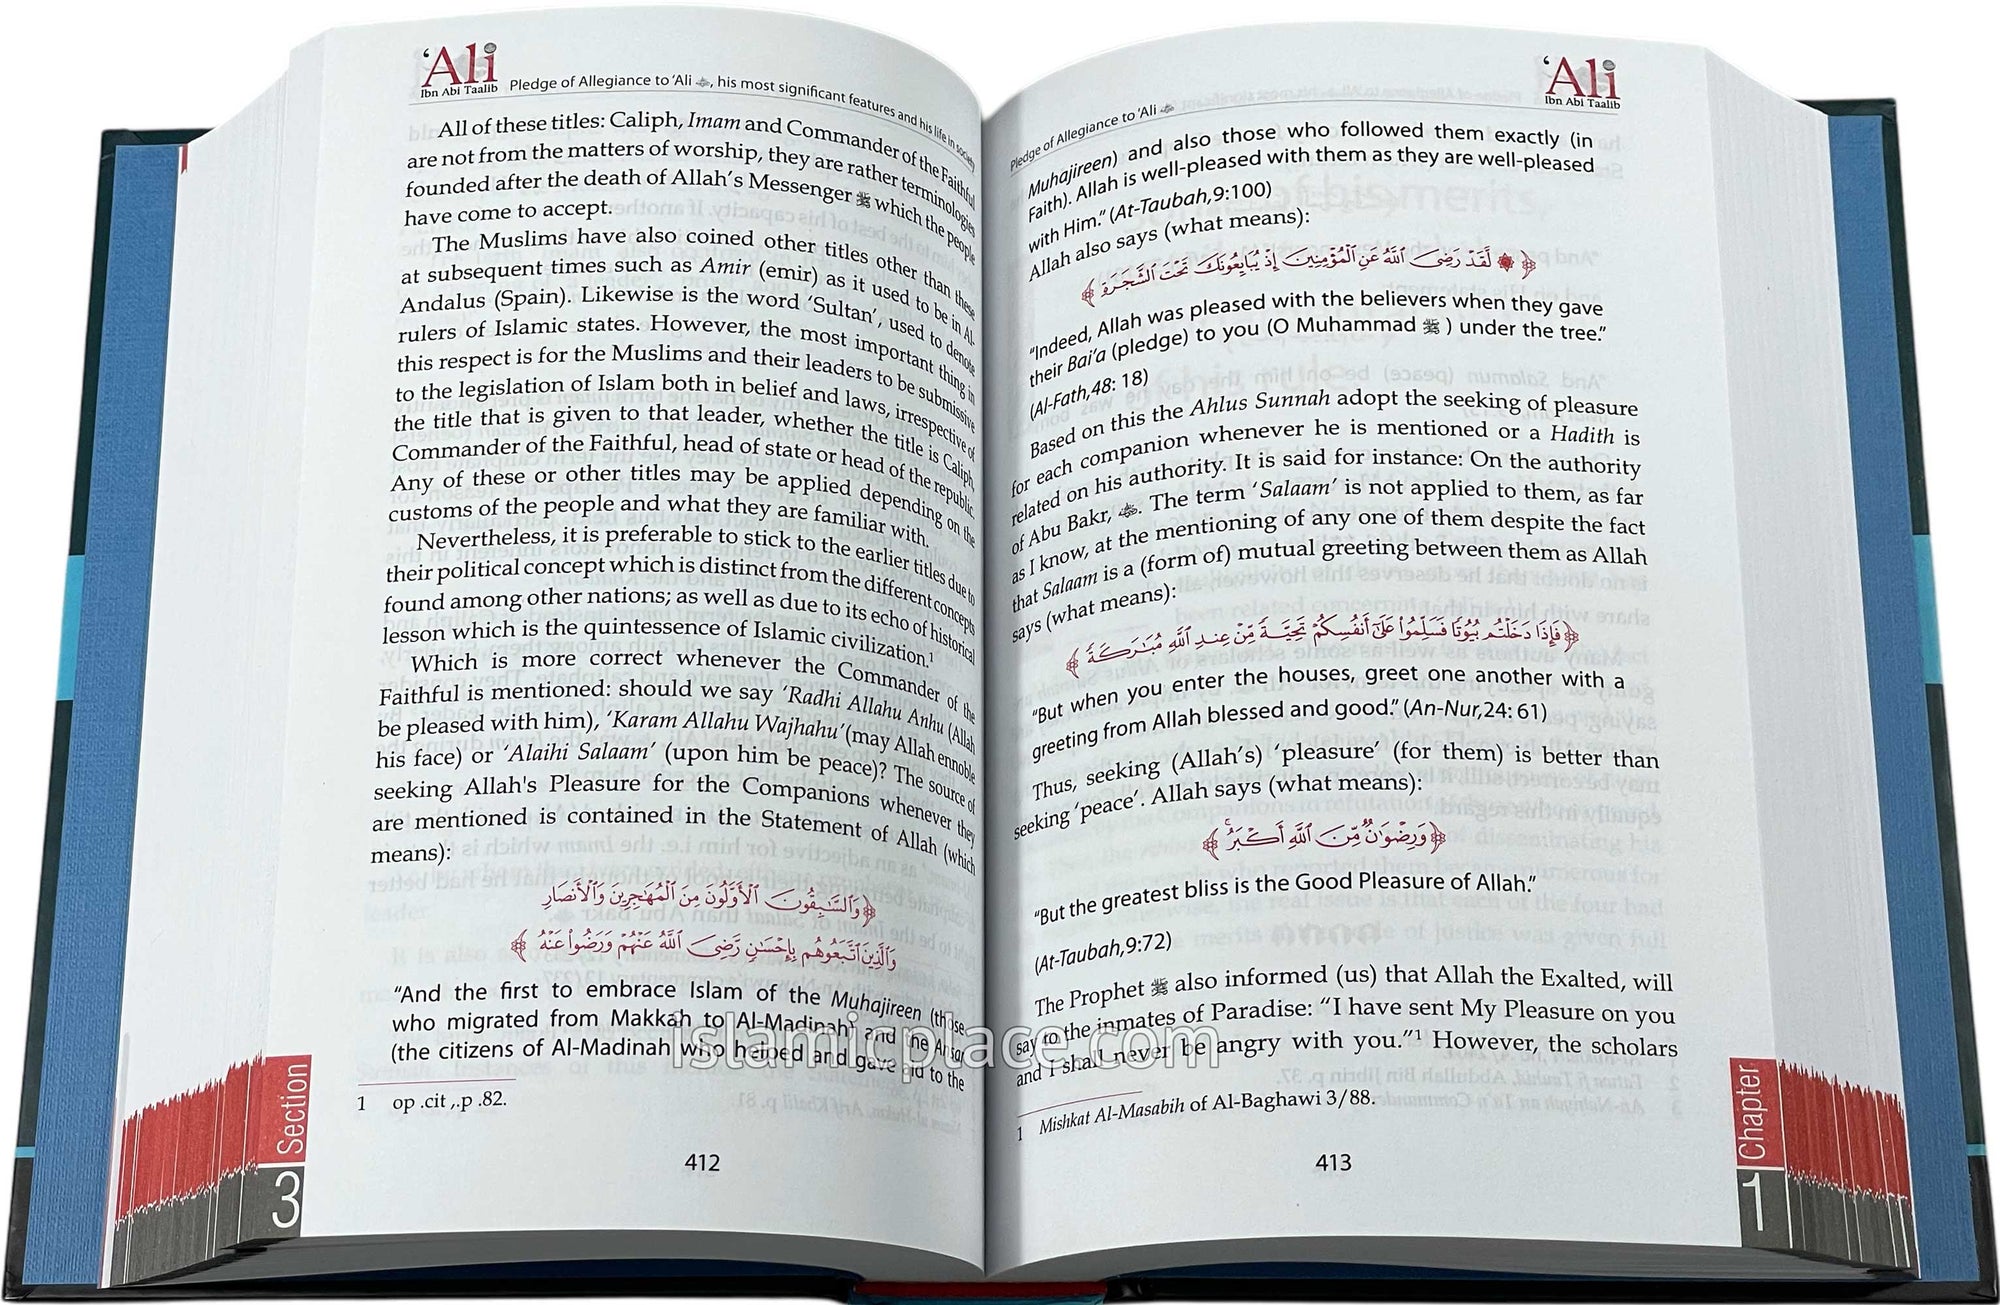 ‘Ali
Ibn Abi Taalib
Pledge of Allegiance to ‘Ali ﷜, his most significant features and his life in society
All of these titles: Caliph, Imam and Commander of the Faithful
are not from the matters of worship, they are rather terminologies
founded after the death of Allah’s Messenger ﷺ which the people
have come to accept.
The Muslims have also coined other titles other than these
at subsequent times such as Amir (emir) as it used to be in Al-
Andalus (Spain). Likewise is the word ‘Sultan’, used to denote
rulers of Islamic states. However, the most important thing in
this respect is for the Muslims and their leaders to be submissive
to the legislation of Islam both in belief and laws, irrespective of
the title that is given to that leader, whether the title is Caliph,
Commander of the Faithful, head of state or head of the republic.
Any of these or other titles may be applied depending on the
customs of the people and what they are familiar with.
Nevertheless, it is preferable to stick to the earlier titles due to
their political concept which is distinct from the different concepts
found among other nations; as well as due to its echo of historical
lesson which is the quintessence of Islamic civilization.1
Which is more correct whenever the Commander of the
Faithful is mentioned: should we say ‘Radhi Allahu Anhu (Allah
be pleased with him), ‘Karam Allahu Wajhahu’(may Allah ennoble
his face) or ‘Alaihi Salaam’ (upon him be peace)? The source of
seeking Allah's Pleasure for the Companions whenever they
are mentioned is contained in the Statement of Allah (which
means):
﴿وَالسَّابِقُونَ الْأَوَّلُونَ مِنَ الْمُهَاجِرِينَ وَالْأَنصَارِ
وَالَّذِينَ اتَّبَعُوهُم بِإِحْسَانٍ رَّضِيَ اللَّهُ عَنْهُمْ وَرَضُوا عَنْهُ﴾
“And the first to embrace Islam of the Muhajireen (those
who migrated from Makkah to Al-Madinah) and the Ansar
(the citizens of Al-Madinah who helped and gave aid to the
1 op .cit ,.p .82.
412
Section
3
‘Ali
Ibn Abi Taalib
Pledge of Allegiance to ‘Ali ﷜
Muhajireen) and also those who followed them exactly (in
Faith). Allah is well-pleased with them as they are well-pleased
with Him.” (At-Taubah,9:100)
Allah also says (what means):
﴿۞ لَّقَدْ رَضِيَ اللَّهُ عَنِ الْمُؤْمِنِينَ إِذْ يُبَايِعُونَكَ تَحْتَ الشَّجَرَةِ﴾
“Indeed, Allah was pleased with the believers when they gave
their Bai’a (pledge) to you (O Muhammad ﷺ ) under the tree.”
(Al-Fath,48: 18)
Based on this the Ahlus Sunnah adopt the seeking of pleasure
for each companion whenever he is mentioned or a Hadith is
related on his authority. It is said for instance: On the authority
of Abu Bakr, ﷜. The term ‘Salaam’ is not applied to them, as far
as I know, at the mentioning of any one of them despite the fact
that Salaam is a (form of) mutual greeting between them as Allah
says (what means):
﴿فَإِذَا دَخَلْتُم بُيُوتًا فَسَلِّمُوا عَلَىٰ أَنفُسِكُمْ تَحِيَّةً مِّنْ عِندِ اللَّهِ مُبَارَكَةً﴾
“But when you enter the houses, greet one another with a
greeting from Allah blessed and good.” (An-Nur,24: 61)
Thus, seeking (Allah’s) ‘pleasure’ (for them) is better than
seeking ‘peace’. Allah says (what means):
﴿وَرِضْوَانٌ مِّنَ اللَّهِ أَكْبَرُ﴾
“But the greatest bliss is the Good Pleasure of Allah.”
(At-Taubah,9:72)
The Prophet ﷺ also informed (us) that Allah the Exalted, will
say to the inmates of Paradise: “I have sent My Pleasure on you
and I shall never be angry with you.”1 However, the scholars
1 Mishkat Al-Masabih of Al-Baghawi 3/88.
413
Chapter
1
islamicplace.com